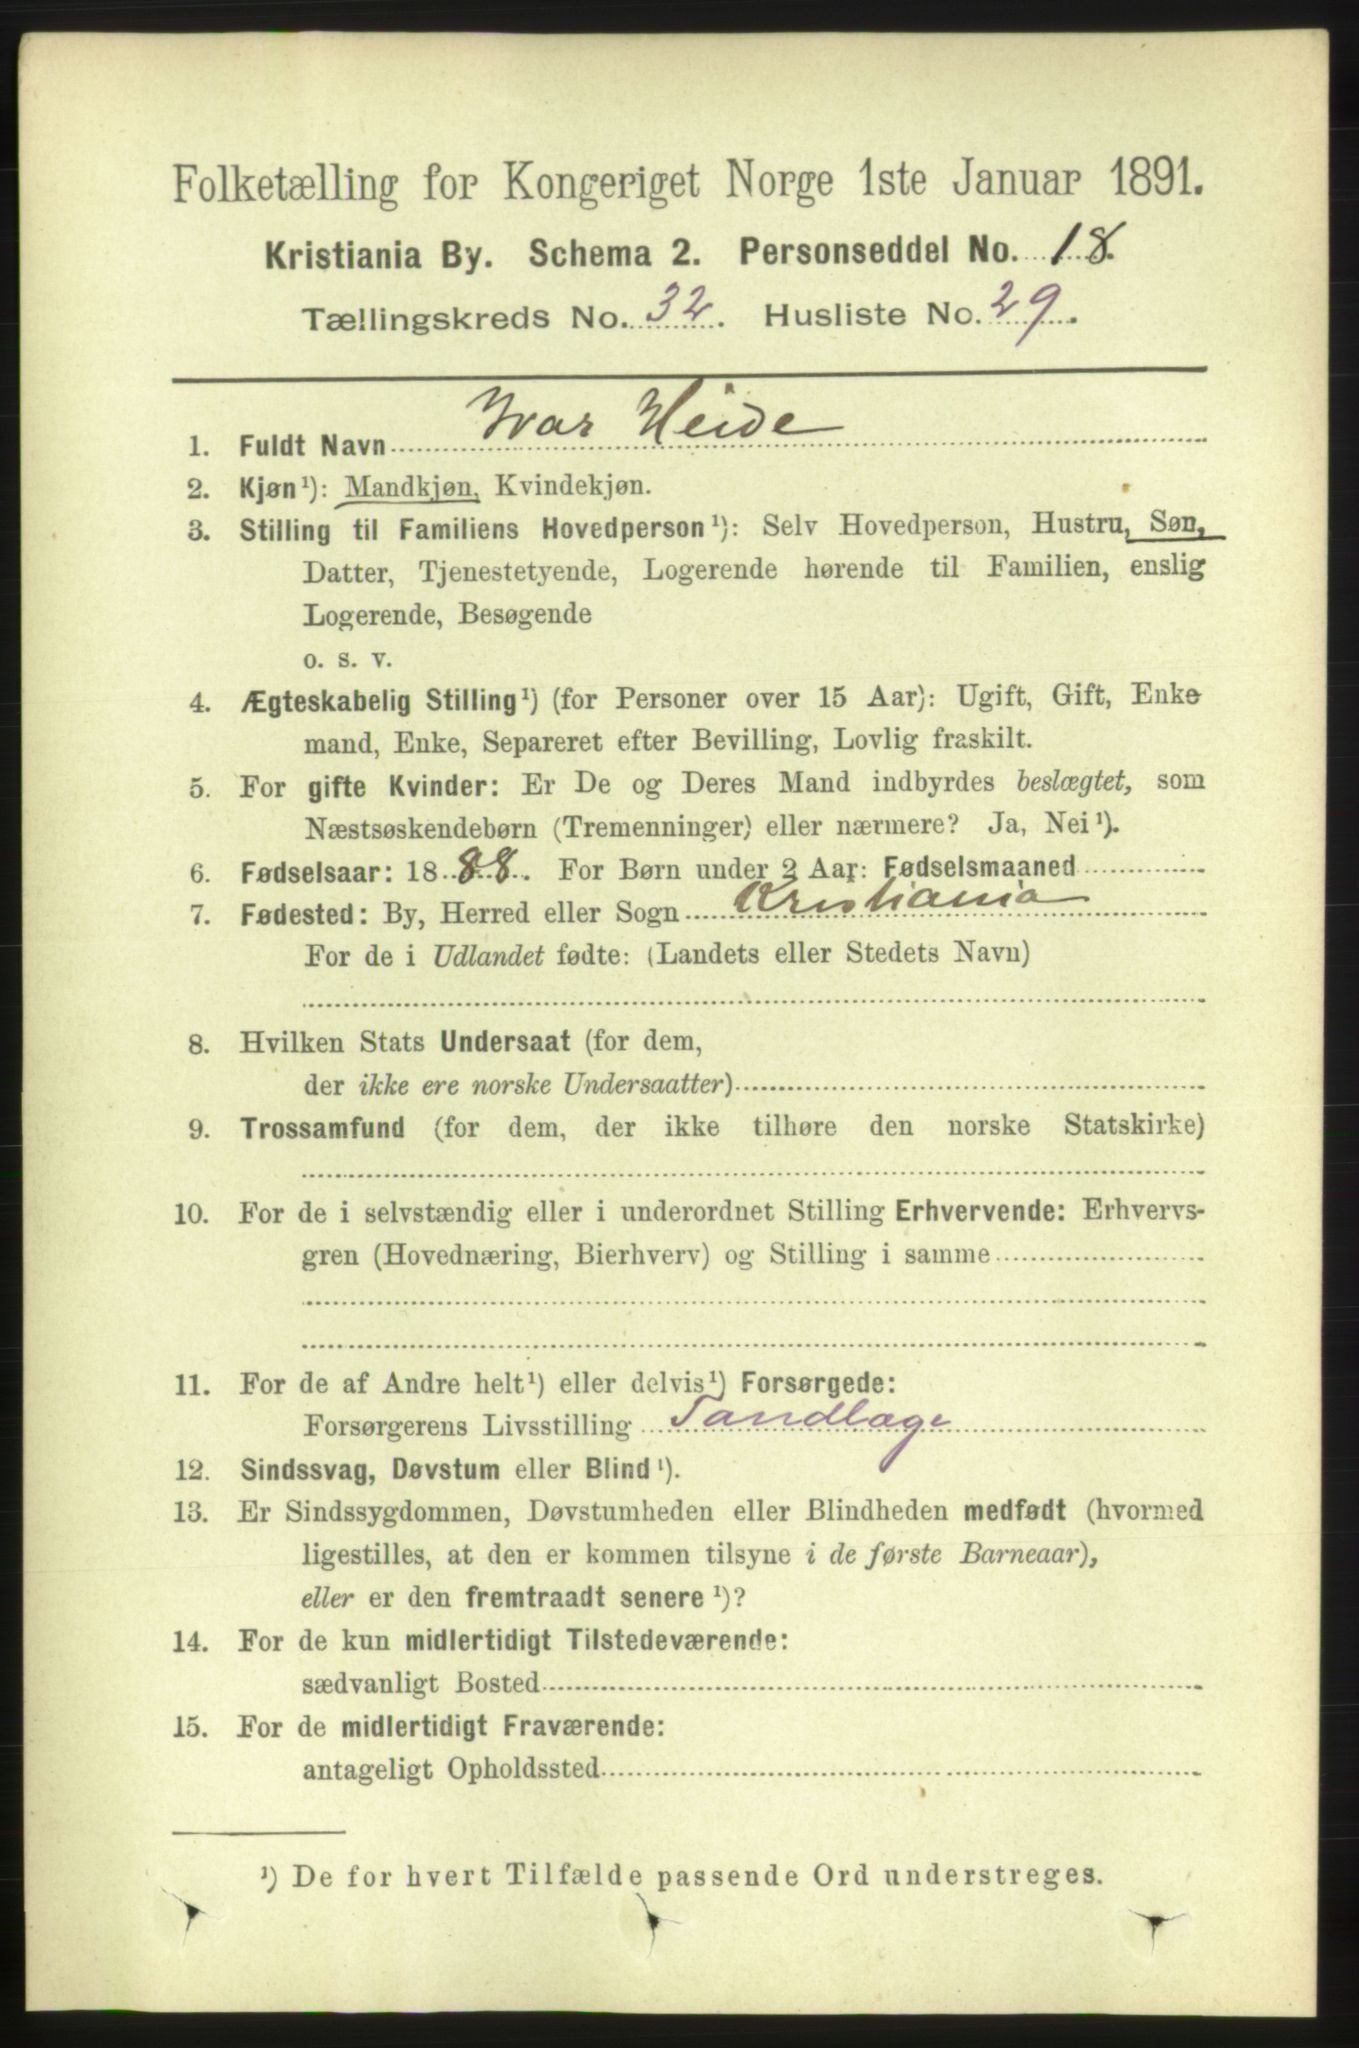 Folketælling for Kongeriget Norge 1ste Januar 1891.
Kristiania By. Schema 2. Personseddel No. 18.
Tællingskreds No. 32. Husliste No. 29.
1. Fuldt Navn Ivar Heide
2. Kjøn¹): Mandkjøn, Kvindekjøn.
3. Stilling til Familiens Hovedperson¹): Selv Hovedperson, Hustru, Søn,
Datter, Tjenestetyende, Logerende hørende til Familien, enslig
Logerende, Besøgende
o. s. v.
4. Ægteskabelig Stilling¹) (for Personer over 15 Aar): Ugift, Gift, Enke-
mand, Enke, Separeret efter Bevilling, Lovlig fraskilt.
5. For gifte Kvinder: Er De og Deres Mand indbyrdes beslægtet, som
Næstsøskendebørn (Tremenninger) eller nærmere? Ja, Nei¹).
6. Fødselsaar: 1888. For Børn under 2 Aar: Fødselsmaaned
7. Fødested: By, Herred eller Sogn Kristiania
For de i Udlandet fødte: (Landets eller Stedets Navn)
8. Hvilken Stats Undersaat (for dem,
der ikke ere norske Undersaatter)
9. Trossamfund (for dem, der ikke tilhøre den norske Statskirke)
10. For de i selvstændig eller i underordnet Stilling Erhvervende: Erhvervs-
gren (Hovednæring, Bierhverv) og Stilling i samme
11. For de af Andre helt¹) eller delvis¹) Forsørgede:
Forsørgerens Livsstilling Tandlæge
12. Sindssvag, Døvstum eller Blind¹).
13. Er Sindssygdommen, Døvstumheden eller Blindheden medfødt (hvormed
ligestilles, at den er kommen tilsyne i de første Barneaar),
eller er den fremtraadt senere¹)?
14. For de kun midlertidigt Tilstedeværende:
sædvanligt Bosted
15. For de midlertidigt Fraværende:
antageligt Opholdssted
¹) De for hvert Tilfælde passende Ord understreges.